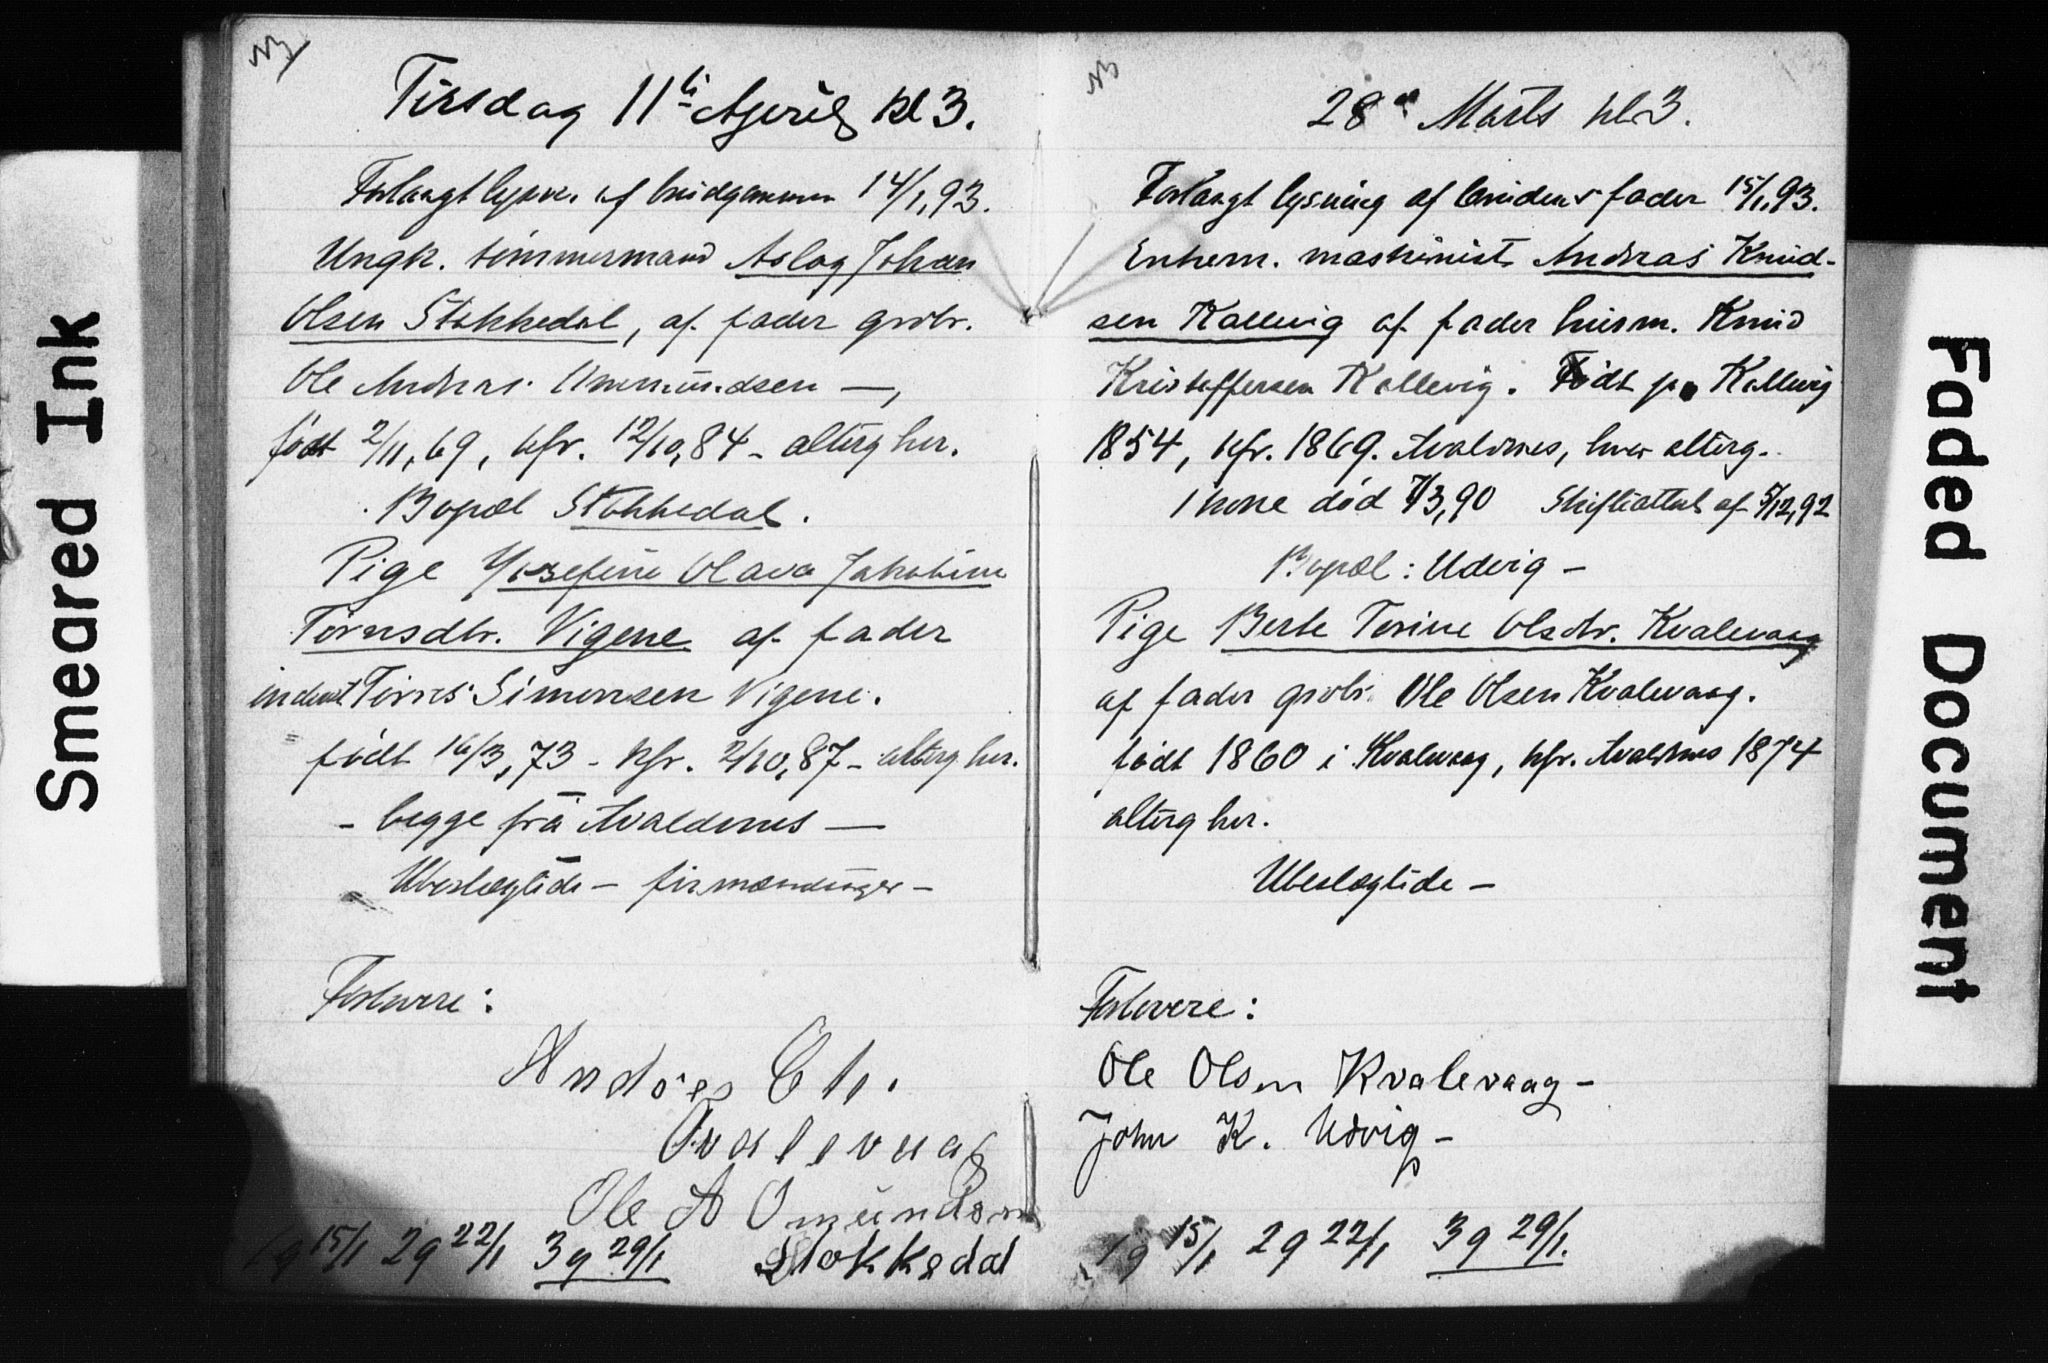 NB
Tirsdag 11te April kl 3.
Forlangt lysn. af brudgommen 14/1,93.
Ungk. tømmermand Aslag Johan
Olsen Stakkedal, af fader grdbr.
Ole Andreas Ommundsen —,
født 2/11,69, kfr. 12/10,84 - alterg her.
Bopæl Stokkedal.
Pige Josefine Olava Jakobine
Tørresdtr. Vigene af fader
inderst Tørres Simonsen Vigene.
født 16/3,73 - kfr. 2/10,87 - alterg her.
- begge frå Avaldsnes —
Ubeslægtide - firmænninger -
Forlovere:
Andreas Chr.
Kvalevaag
Ole A Omundsen
Stokkedal
1g 15/1 2g 22/1 3g 29/1
NB
28de Marts kl. 3.
Forlangt lysning af brudens fader 15/1,93.
Enkem. maskinist Andreas Knud-
sen Kallevig af fader husm. Knud
Kristoffersen Kallevig. Født på Kallevig
1854, kfr. 1869. Avaldsnes, hver alterg.
1 kone død 7/3,90 Skifteattest af 5/12,92
Bopæl: Udvig -
Pige Berte Torine Olsdtr. Kvalevaag
af fader grdbr. Ole Olsen Kvalevaag.
født 1860 i Kvalevaag, kfr. Avaldsnes 1874
alterg her.
Ubeslægtide -
Forlovere:
Ole Olsen Kvalevaag -
John K. Udvig -
1g 15/1 2g 22/1 3g 29/1.
Smeared Ink
Faded Document